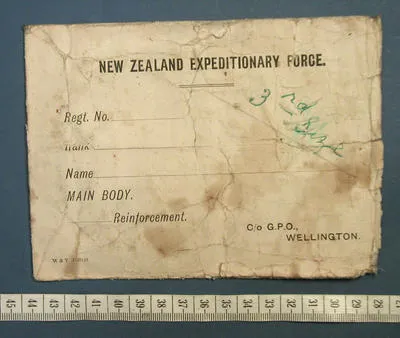 NEW ZEALAND EXPEDITIONARY FORCE.
3rd
Size
Regt. No.
Rank
Name
MAIN BODY.
Reinforcement.
C/o G.P.O.,
WELLINGTON.
W & T
45 44 43 42 41 40 39 38 37 36 35 34 33 32 31 30 29 28 27